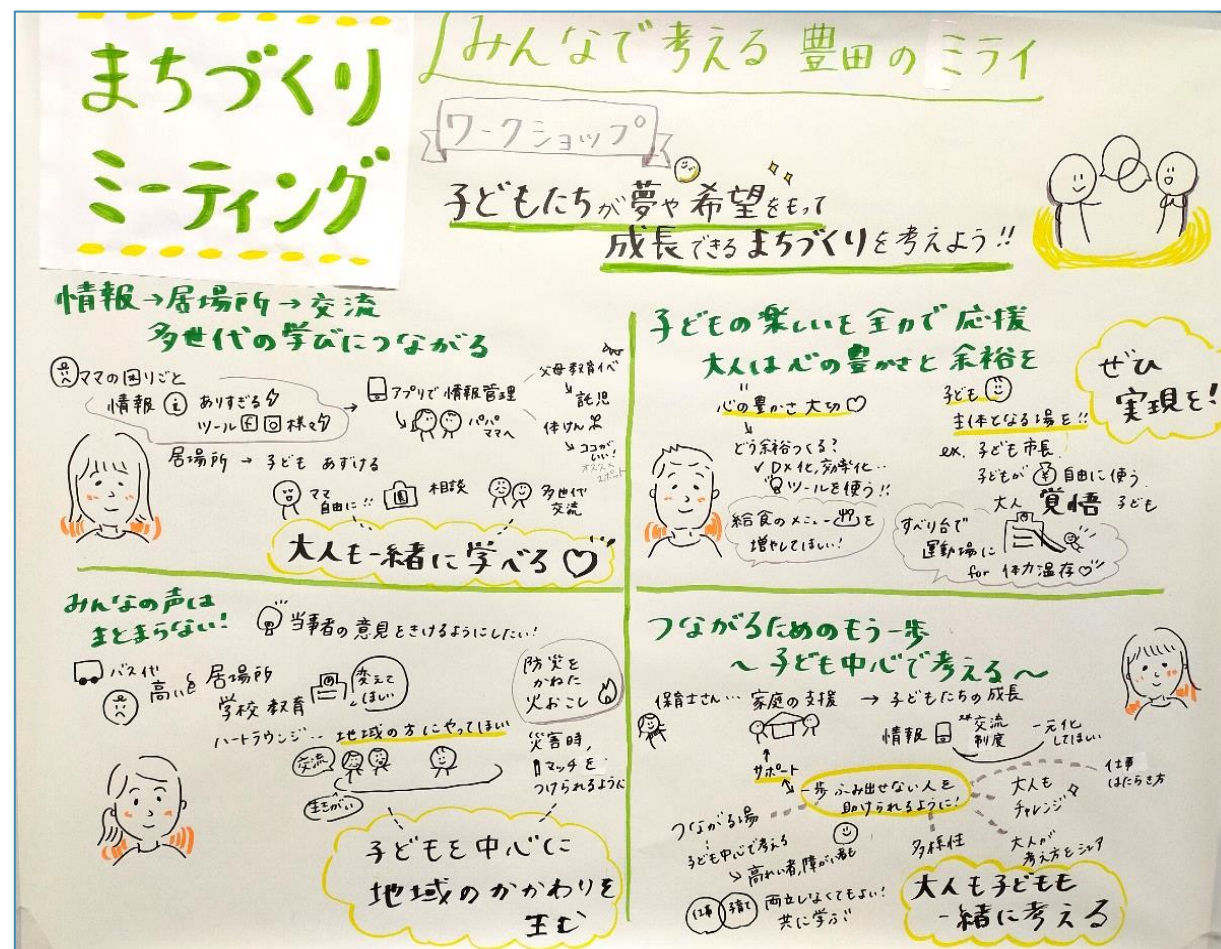 まちづくり
ミーティング
みんなで考える 豊田のミライ
ワークショップ
子どもたちが夢や希望をもって
成長できるまちづくりを考えよう!!
情報→居場所→交流
多世代の学びにつながる
ママの困りごと
情報 i ありすぎる
ツール f 様々
アプリで情報管理
パパ
ママへ
父母教育イベ
↓
託児
体けん
↓
ココが
いい!
オススメ
スポット
居場所 → 子ども あずける
ママ
自由に!!
相談
多世代
交流
大人も一緒に学べる♡
子どもの楽しいを全力で応援
大人は心の豊かさと余裕を
ぜひ
実現を!
心の豊かさ大切♡
↓
どう余裕つくる?
✓DX化,効率化‥
ツールを使う!!
給食のメニューを
増やしてほしい!
子ども
主体となる場を!!
ex. 子ども市長
子どもが ¥ 自由に使う
大人 覚悟 子ども
すべり台で
運動場に
for 体力温存♡
みんなの声は
まとまらない!
当事者の意見をきけるようにしたい!
バス代
高い
居場所
学校教育
変えて
ほしい
ハートラウンジ‥地域の方にやってほしい
交流
生きがい
防災を
かねた
火おこし
災害時,
マッチを
つけられるように
子どもを中心に
地域のかかわりを
生む
つながるためのもう一歩
〜子ども中心で考える〜
保育士さん… 家庭の支援 → 子どもたちの成長
サポート
情報
交流
制度
一元化
してほしい
一歩ふみ出せない人を
助けられるように!
仕事
はたらき方
大人も
チャレンジ
大人が
考え方をシェア
多様性
つながる場
子ども中心で考える
→高れい者,障がい者も
仕事 子育て 両立しなくてもよい!
共に学ぶ
大人も子どもも
一緒に考える